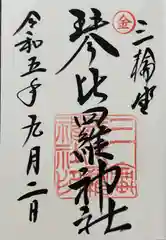 三輪坐
金
琴比羅神社
令和五年九月二日